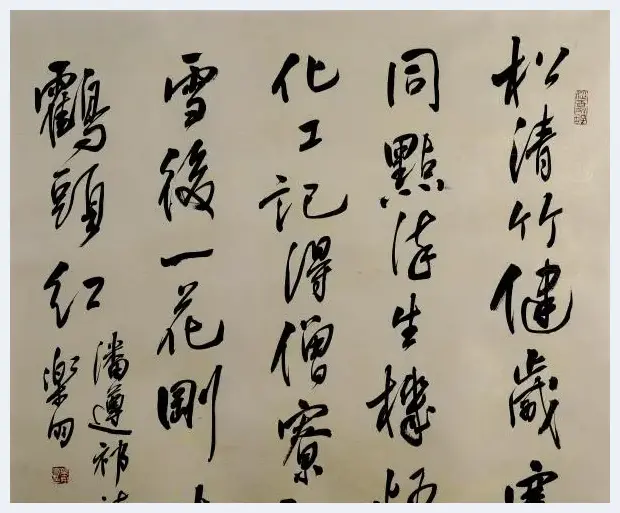 松清竹健歲寒
同點染生機
化工記得僧寮
雪後一花剛
鸖頭紅
潘遵祁
樂